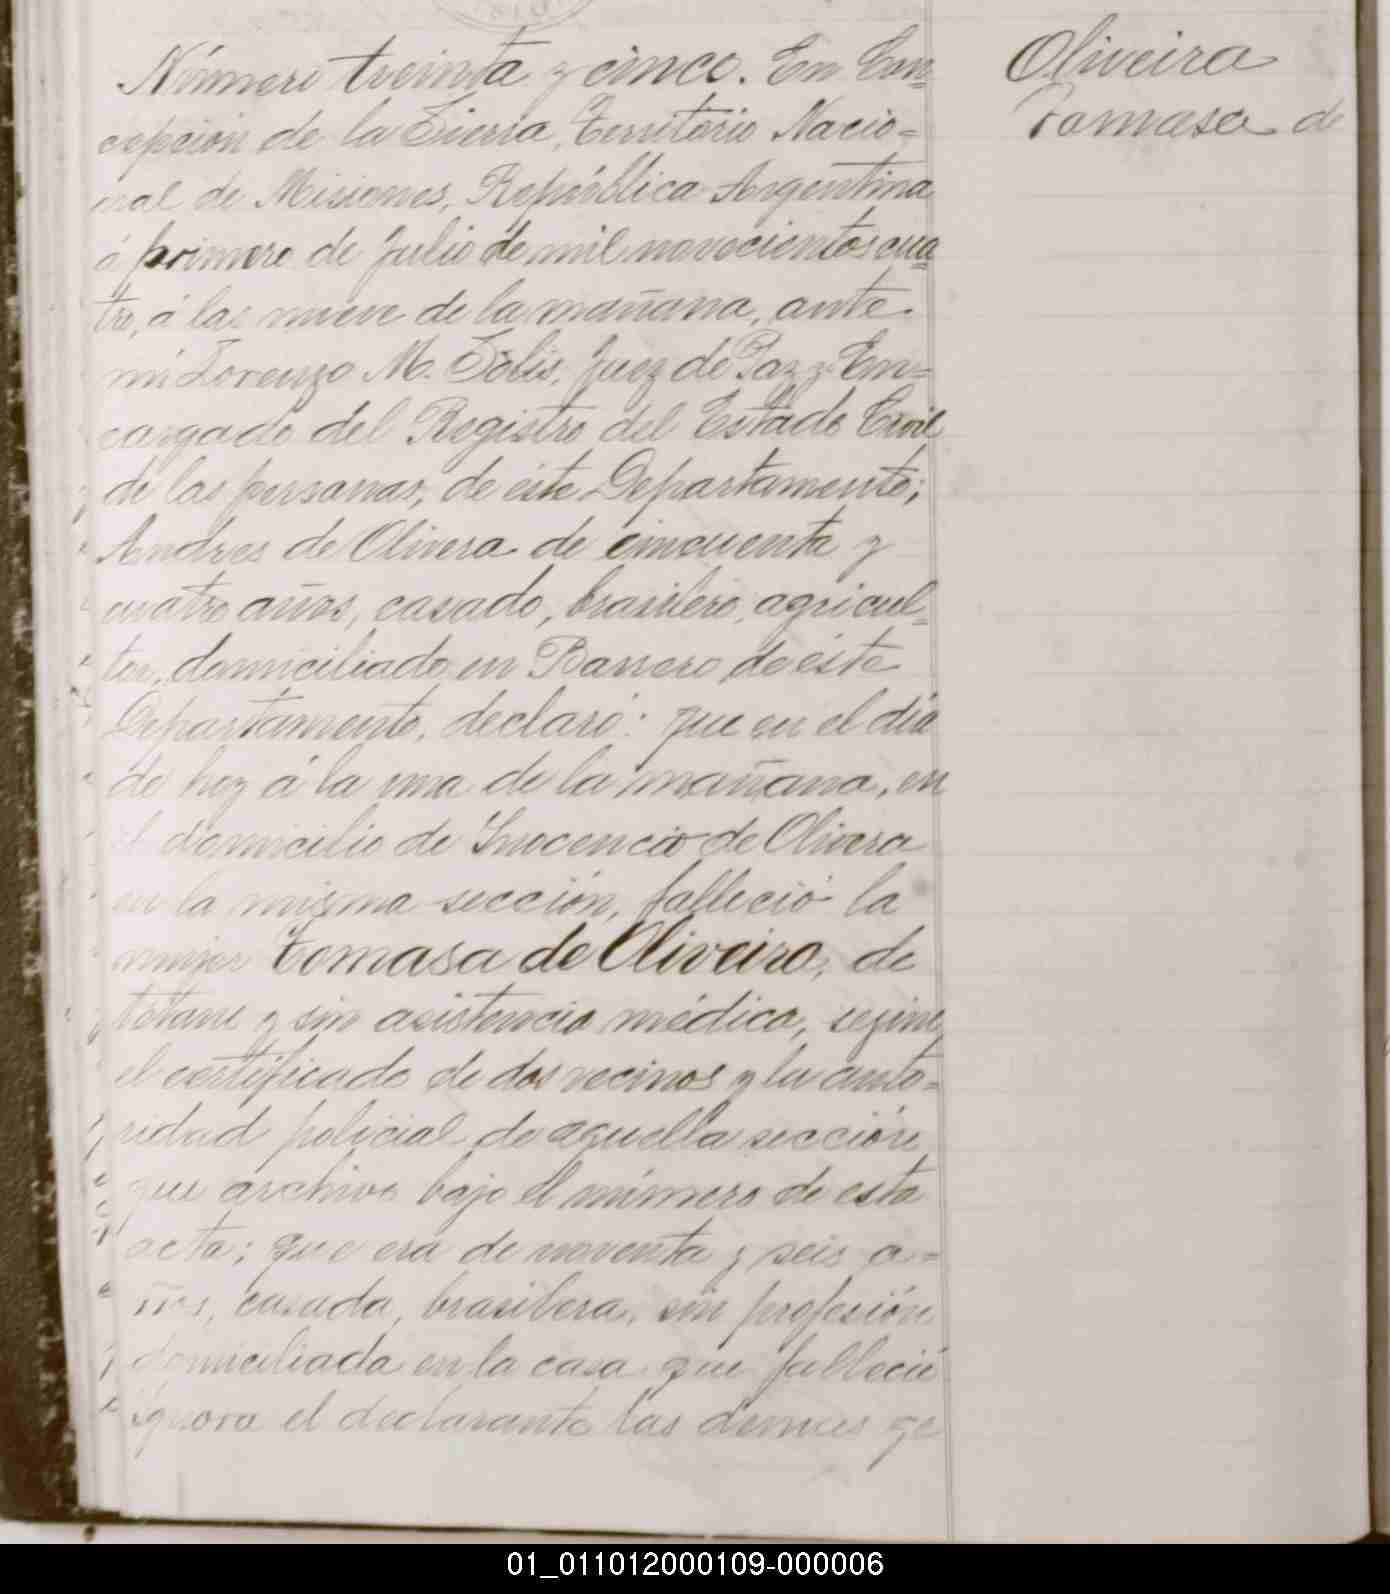 Número treinta y cinco. En Con=
cepción de la Sierra, Territorio Nacio=
nal de Misiones, República Argentina
á primero de Julio de mil novecientos cua=
tro, á las nueve de la mañana, ante
mi Lorenzo M. Solis, Juez de Paz y En=
cargado del Registro del Estado Civil
de las personas, de éste Departamento;
Andres de Olivera de cincuenta y
cuatro años, casado, brasilero, agricul=
tor, domiciliado en Barrero de éste
Departamento, declaró: que en el día
de hoy á la una de la mañana, en
el domicilio de Inocencio de Olivera
en la misma sección, falleció la
mujer Tomasa de Oliveira, de
tétano y sin asistencia médica, según
el certificado de dos vecinos y la auto=
ridad policial de aquella sección
que archivo bajo el número de esta
acta; que era de noventa y seis a=
ños, casada, brasilera, sin profesión
domiciliada en la casa que falleció
ignora el declarante las demas ge
Oliveira
Tomasa de
01_011012000109-000006